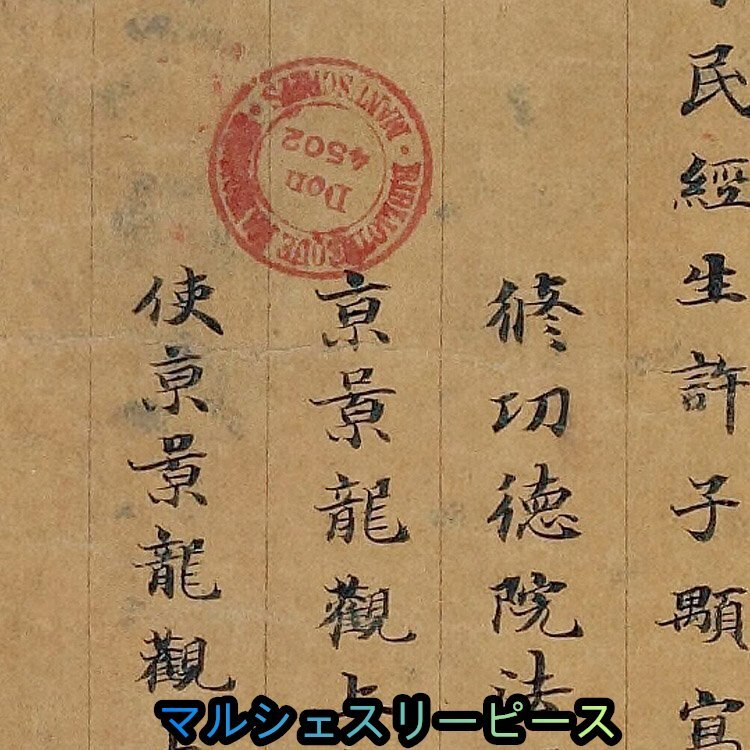 民經生許子顒
修功德院法
亰景龍觀上
使亰景龍觀
Don
4502
マルシェスリーピース